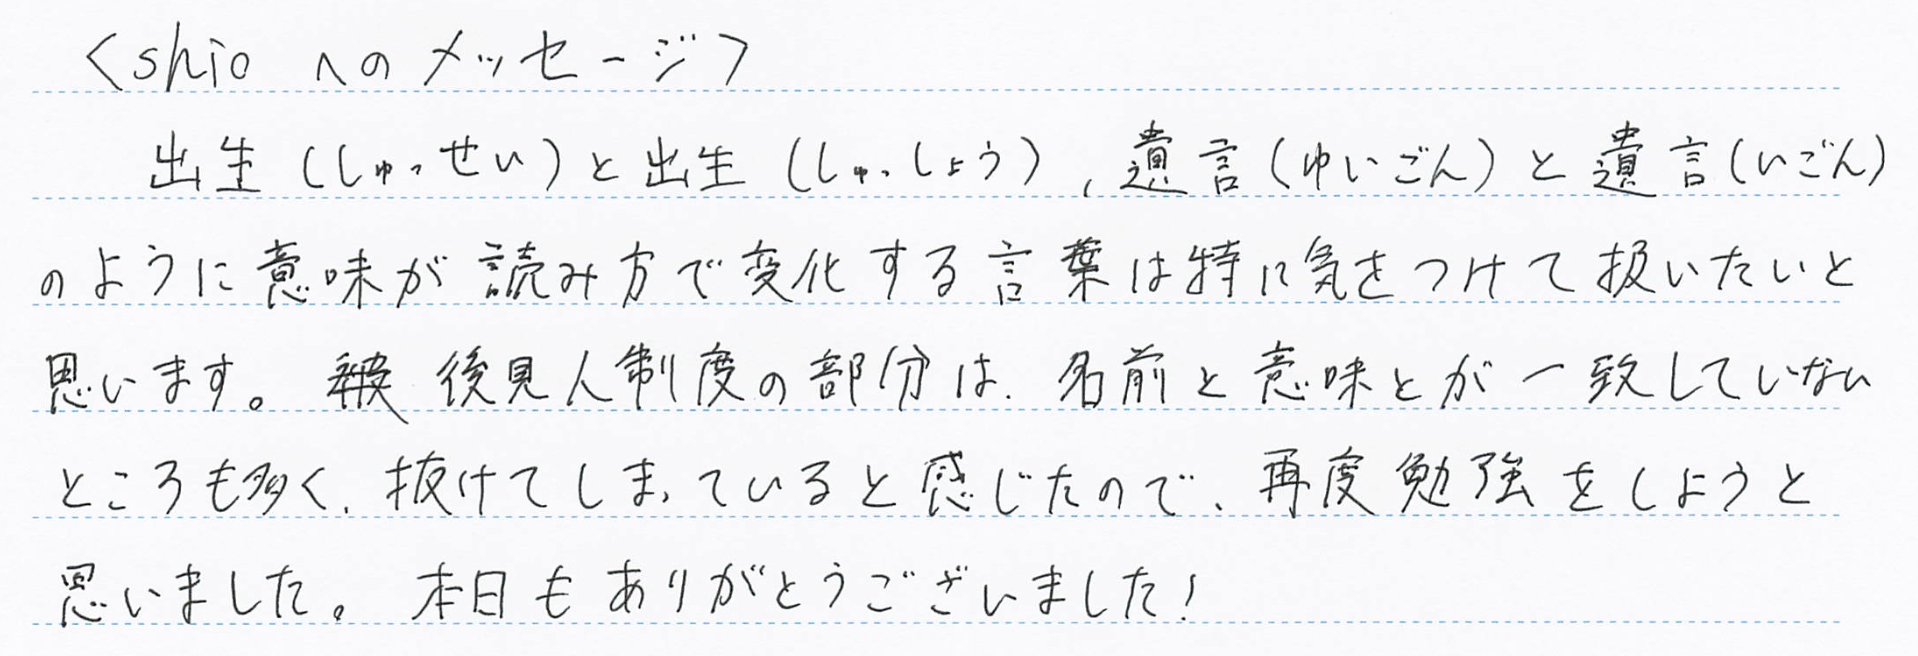 <shio へのメッセージ>
出生(しゅっせい)と出生(しゅっしょう)、遺言(ゆいごん)と遺言(いごん)
のように意味が読み方で変化する言葉は特に気をつけて扱いたいと
思います。 後見人制度の部分は、名前と意味とが一致していない
ところも多く、抜けてしまっていると感じたので、再度勉強をしようと
思いました。本日もありがとうございました!